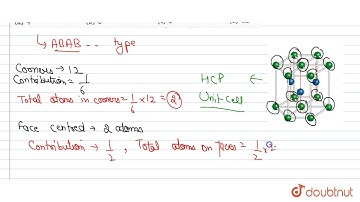 ↳ ABAB... type
Corners → 12
Contribution = 1/6
Total atoms in corners = 1/6 × 12 = 2
HCP ←
Unit-cell
face centred → 2 atoms
Contribution → 1/2 , Total atoms on faces = 1/2 ×
doubtnut